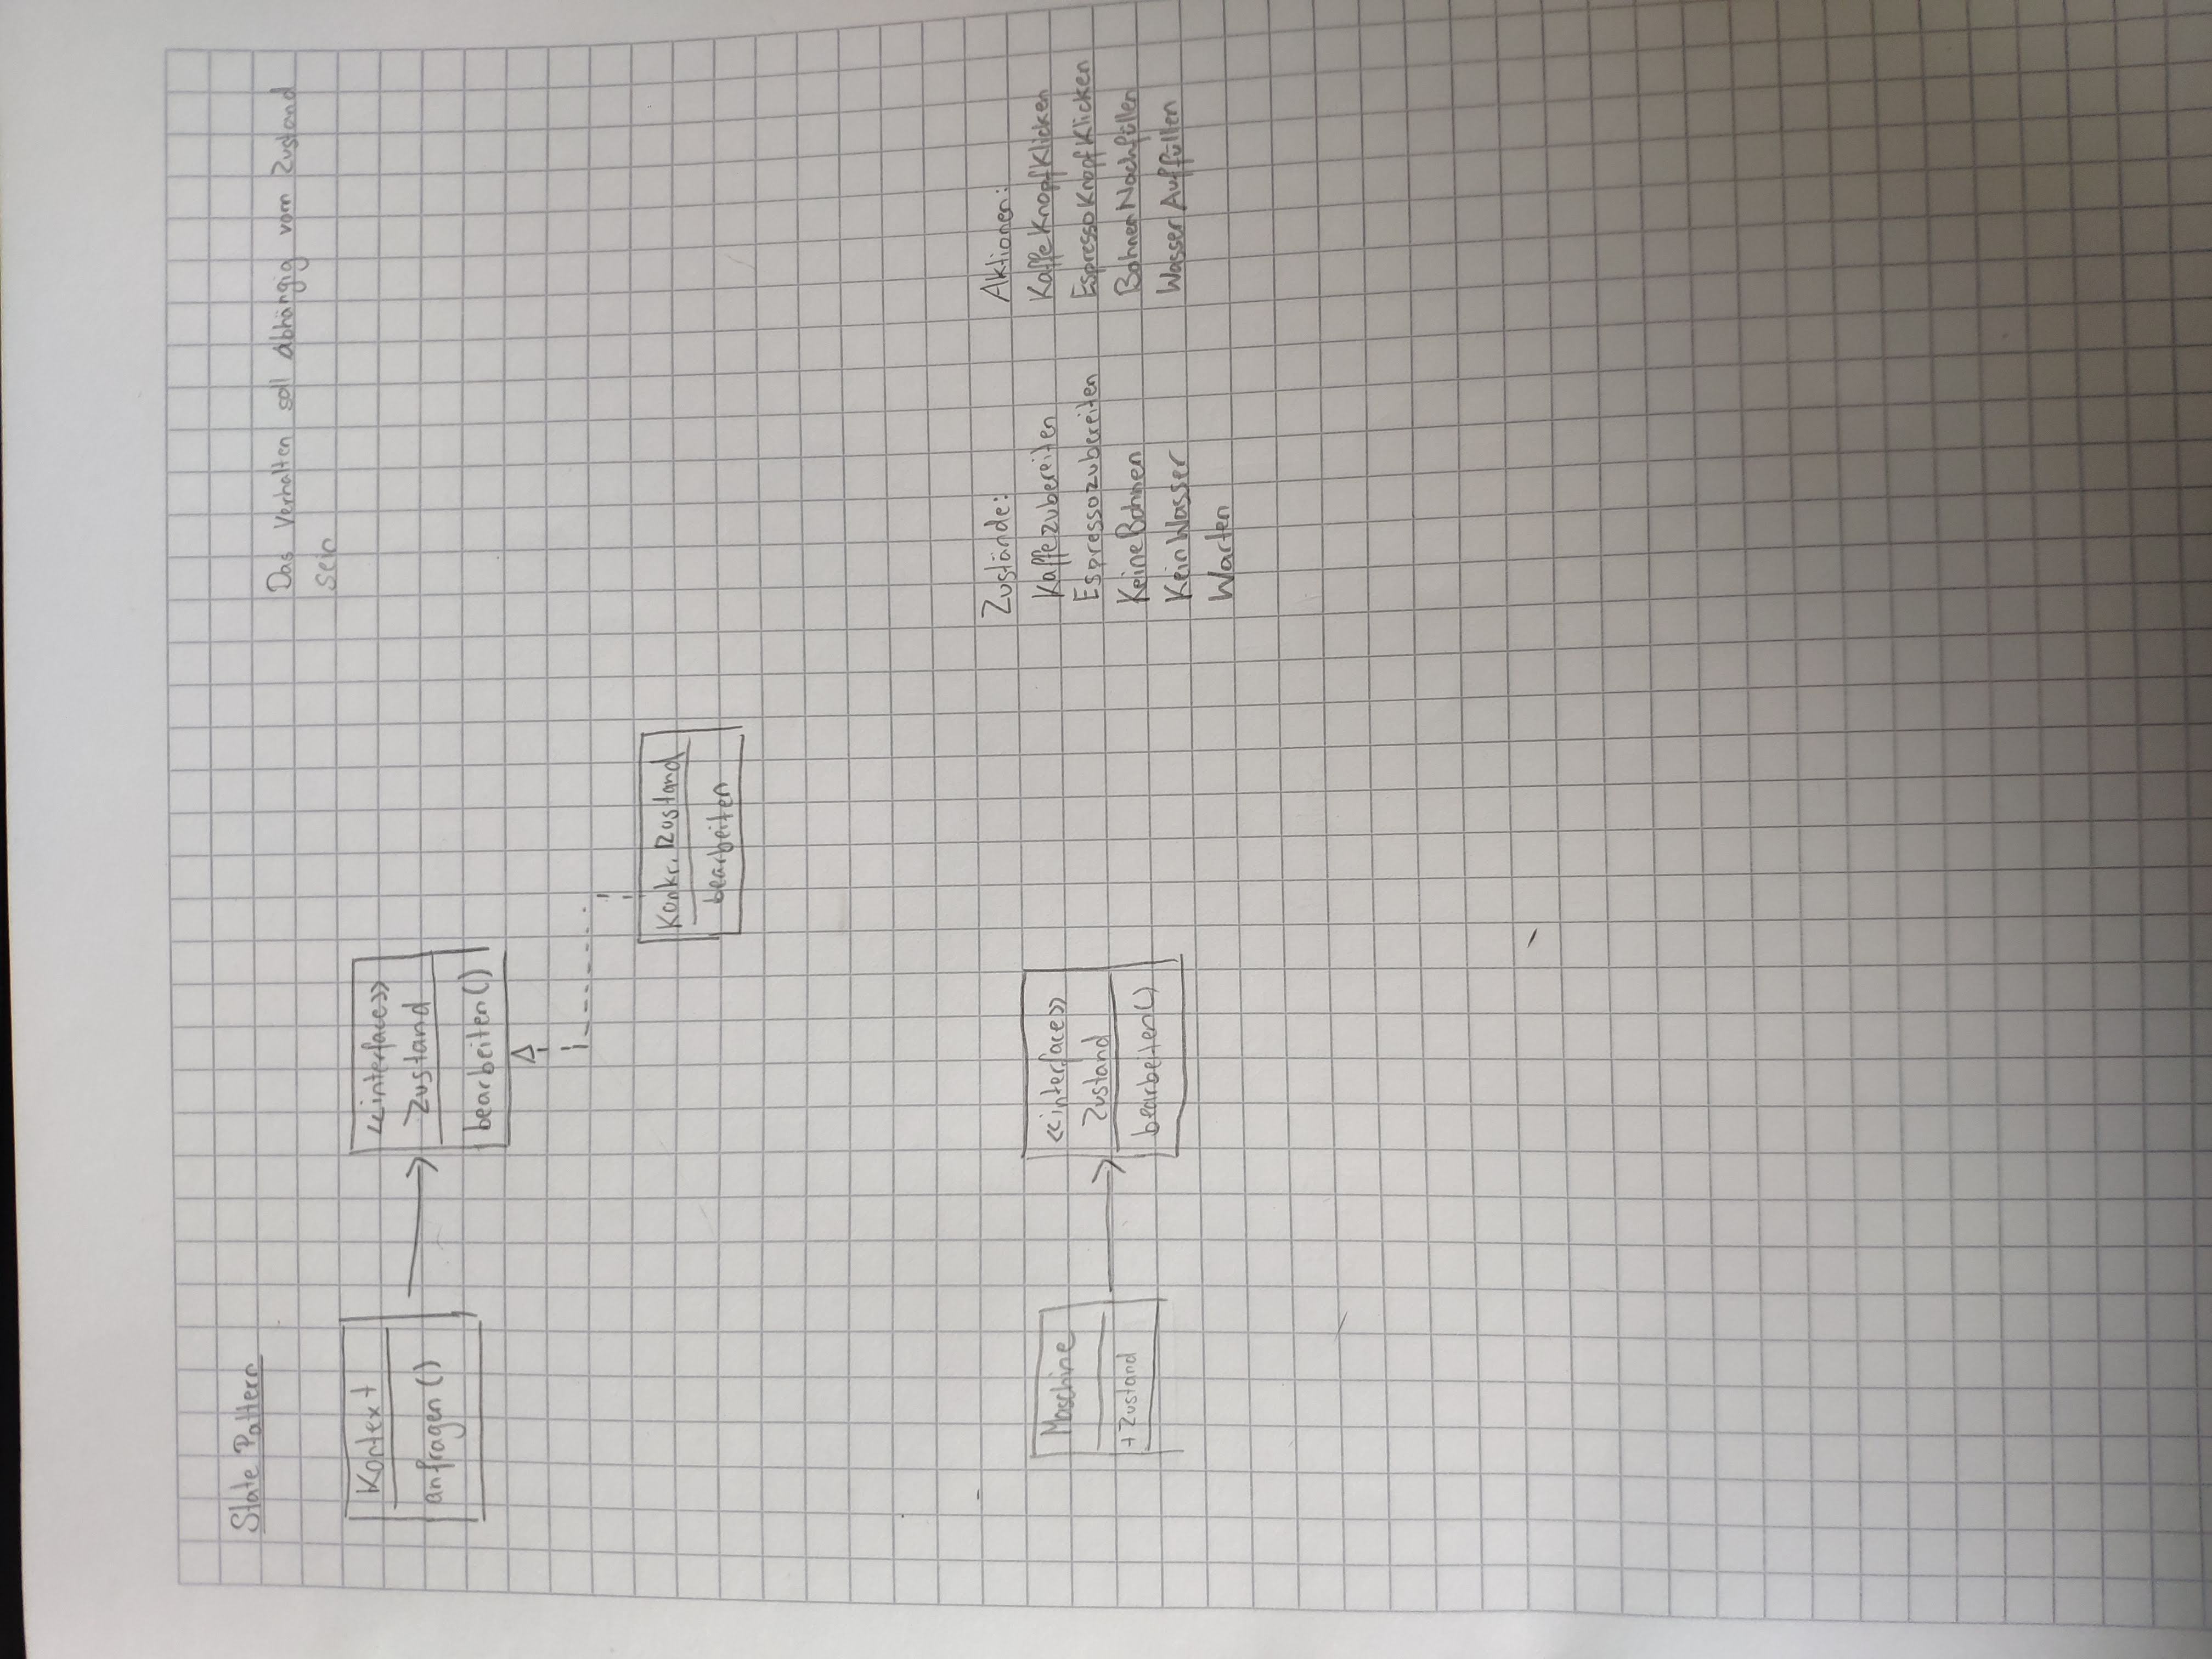 State Pattern
Das Verhalten soll Abhängig vom Zustand
sein
Kontext
anfragen()
<<interface>>
Zustand
bearbeiten()
Konkr. Zustand
bearbeiten
Maschine
+Zustand
<<interface>>
Zustand
bearbeiten()
Zustände:
Kaffezubereiten
Espressozubereiten
KeineBohnen
KeinWasser
Warten
Aktionen:
KaffeKnopfKlicken
EspressoKnopfKlicken
BohnenNachfüllen
WasserAuffüllen